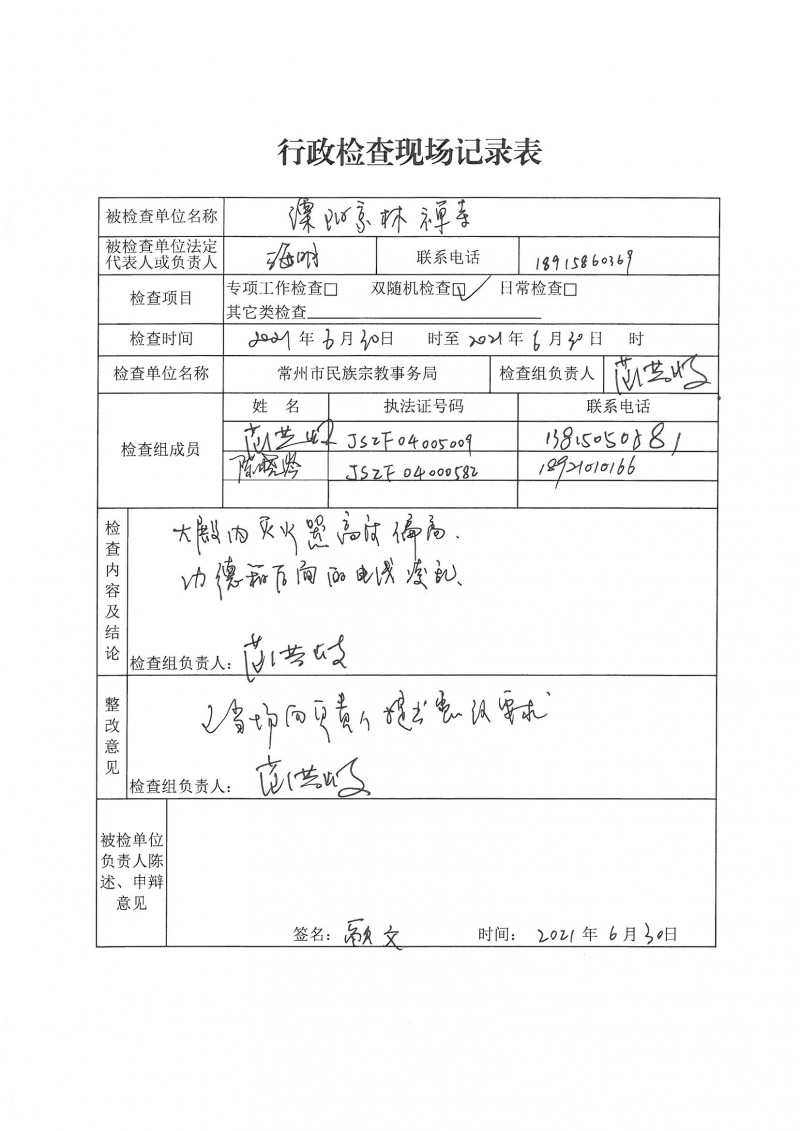 行政检查现场记录表
被检查单位名称 溧阳 林禅寺
被检查单位法定代表人或负责人 海明 联系电话 18915860369
检查项目 专项工作检查□ 双随机检查☑ 日常检查□
其它类检查
检查时间 2021年6月30日 时至2021年6月30日 时
检查单位名称 常州市民族宗教事务局 检查组负责人 范洪
检查组成员 姓 名 执法证号码 联系电话
范洪 JSZF04005009 13815050581
陈晓 JSZF04000582 18921010166
检查内容及结论
大殿内灭火器高度偏高.
功德箱后面的电线凌乱.
检查组负责人: 范洪
整改意见
已当场向负责人提出 要求
检查组负责人: 范洪
被检单位负责人陈述、申辩意见
签名: 文 时间: 2021年6月30日